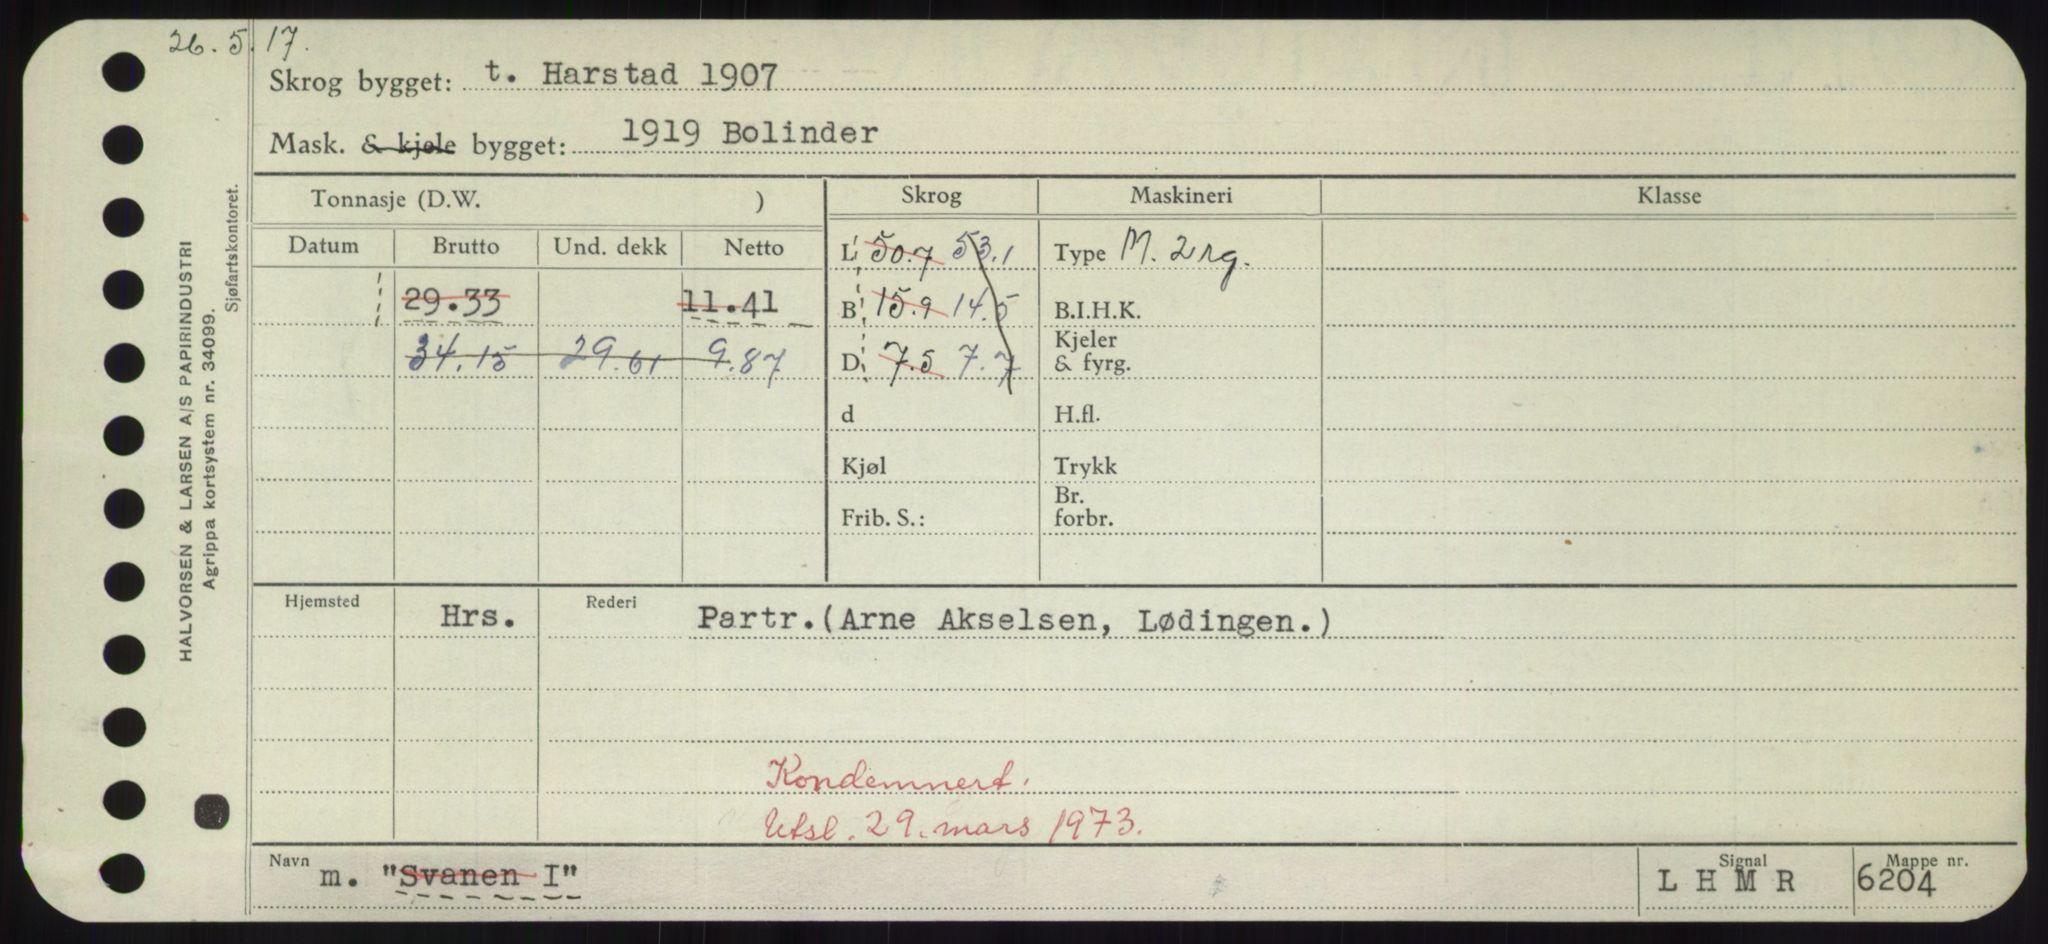 26. 5. 17.
Skrog bygget: t. Harstad 1907
Mask. & kjele bygget: 1919 Bolinder
Tonnasje (D.W. ) Skrog Maskineri Klasse
Datum Brutto Und. dekk Netto
L 50.7 53.1 Type M. 2 rg.
29.33 11.41 B 15.9 14.5 B.I.H.K.
34.15 29.61 9.87 D 7.5 7.7 Kjeler & fyrg.
d H.fl.
Kjøl Trykk
Frib. S.: Br. forbr.
Hjemsted Hrs. Rederi Partr.(Arne Akselsen, Lødingen.)
Kondemnert.
Utsl. 29. mars 1973.
Navn m. "Svanen I" Signal L H M R Mappe nr. 6204
HALVORSEN & LARSEN A/S PAPIRINDUSTRI
Agrippa kortsystem nr. 34099.
Sjøfartskontoret.